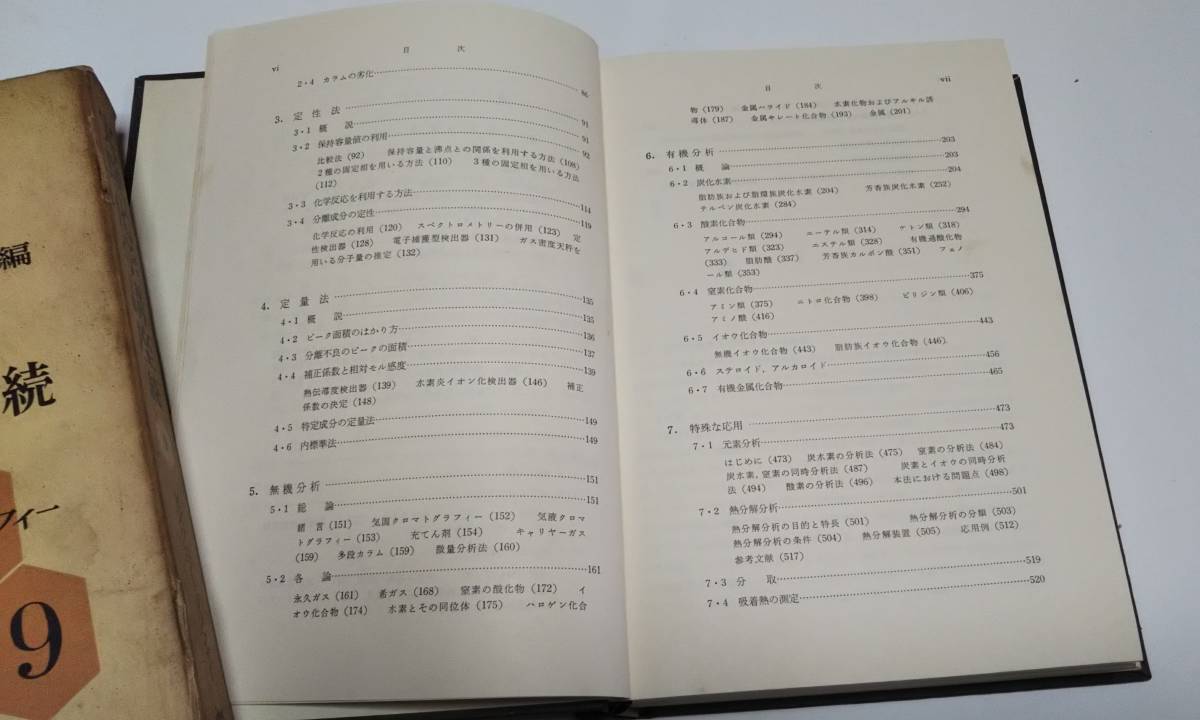 編
続
フィー
9
vi
目 次
2・4 カラムの劣化 86
3. 定性法 91
3・1 概説 91
3・2 保持容量値の利用 92
比較法 (92) 保持容量と沸点との関係を利用する方法 (108)
2種の固定相を用いる方法 (110) 3種の固定相を用いる方法
(112)
3・3 化学反応を利用する方法 114
3・4 分離成分の定性 119
化学反応の利用 (120) スペクトロメトリーの併用 (123) 定
性検出器 (128) 電子捕獲型検出器 (131) ガス密度天秤を
用いる分子量の推定 (132)
4. 定量法 135
4・1 概説 135
4・2 ピーク面積のはかり方 136
4・3 分離不良のピークの面積 137
4・4 補正係数と相対モル感度 139
熱伝導度検出器 (139) 水素炎イオン化検出器 (146) 補正
係数の決定 (148)
4・5 特定成分の定量法 149
4・6 内標準法 149
5. 無機分析 151
5・1 総論 151
緒言 (151) 気固クロマトグラフィー (152) 気液クロマ
トグラフィー (153) 充てん剤 (154) キャリヤーガス
(159) 多段カラム (159) 微量分析法 (160)
5・2 各論 161
永久ガス (161) 希ガス (168) 窒素の酸化物 (172) イ
オウ化合物 (174) 水素とその同位体 (175) ハロゲン化合
目 次
vii
物 (179) 金属ハライド (184) 水素化物およびアルキル誘
導体 (187) 金属キレート化合物 (193) 金属 (201)
6. 有機分析 203
6・1 概論 203
6・2 炭化水素 204
脂肪族および脂環族炭化水素 (204) 芳香族炭化水素 (252)
テルペン炭化水素 (284)
6・3 酸素化合物 294
アルコール類 (294) エーテル類 (314) ケトン類 (318)
アルデヒド類 (323) エステル類 (328) 有機過酸化物
(333) 脂肪酸 (337) 芳香族カルボン酸 (351) フェノ
ール類 (353)
6・4 窒素化合物 375
アミン類 (375) ニトロ化合物 (398) ピリジン類 (406)
アミノ酸 (416)
6・5 イオウ化合物 443
無機イオウ化合物 (443) 脂肪族イオウ化合物 (446)
6・6 ステロイド,アルカロイド 456
6・7 有機金属化合物 465
7. 特殊な応用 473
7・1 元素分析 473
はじめに (473) 炭水素の分析法 (475) 窒素の分析法 (484)
炭水素,窒素の同時分析法 (487) 炭素とイオウの同時分析
法 (494) 酸素の分析法 (496) 本法における問題点 (498)
7・2 熱分解分析 501
熱分解分析の目的と特長 (501) 熱分解分析の分類 (503)
熱分解分析の条件 (504) 熱分解装置 (505) 応用例 (512)
参考文献 (517)
7・3 分取 519
7・4 吸着熱の測定 520